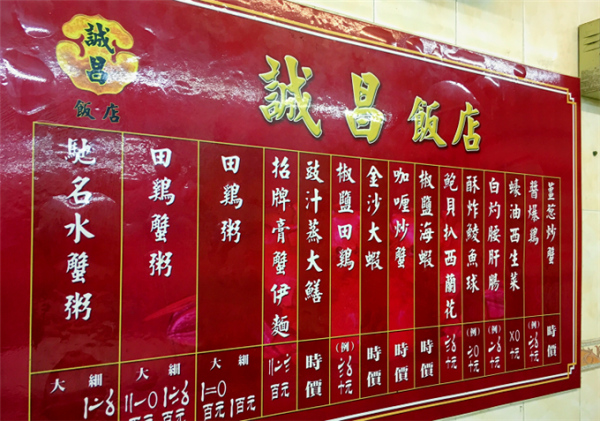 誠昌
飯店
誠昌飯店
薑葱炒蟹
時價
醬爆鷄
(例)
蠔油西生菜
白灼腰肝腸
(例)
酥炸鯪魚球
(例)
鮑貝扒西蘭花
椒鹽海蝦
時價
咖喱炒蟹
時價
金沙大蝦
時價
椒鹽田鷄
(例)
豉汁蒸大鱔
時價
招牌膏蟹伊麵
百元
田鷄粥
大 細
百元 1百元
田鷄蟹粥
大 細
百元 百元
馳名水蟹粥
大 細